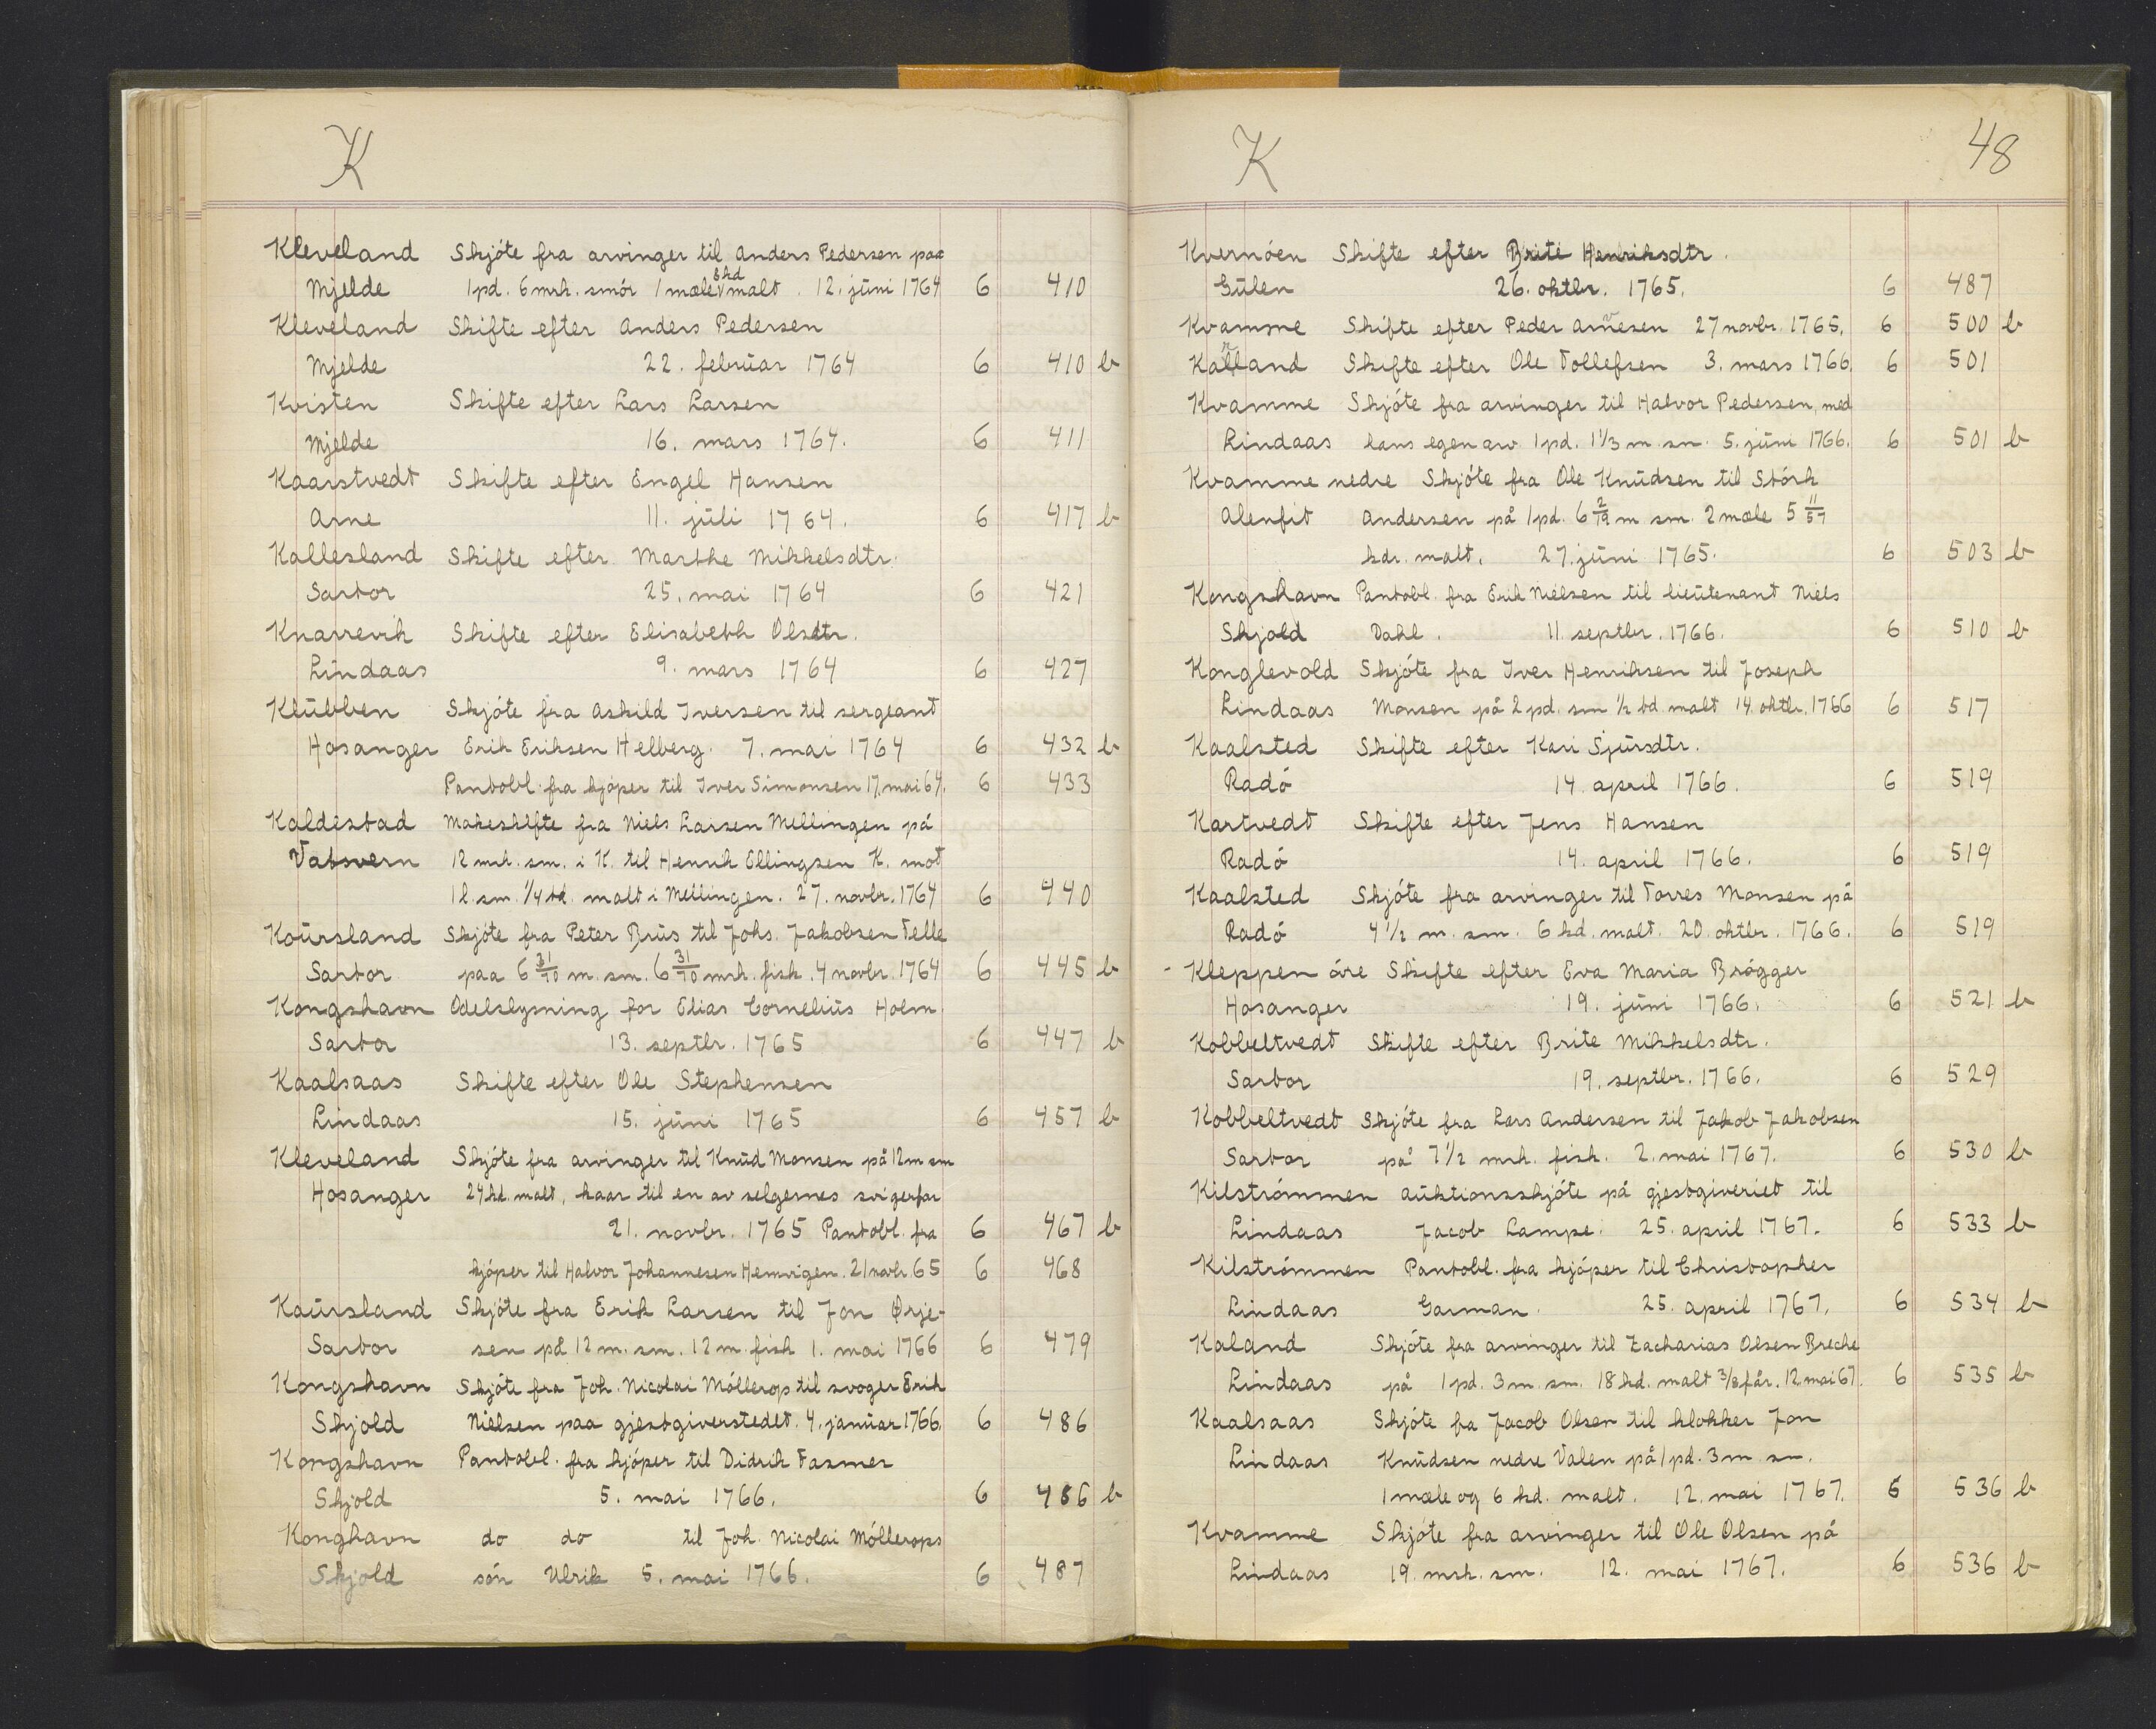 K
Kleveland Skjóte fra arvinger til Anders Pedersen paa
Mjelde 1 pd. 6 mrk. smór 1 mæle 8 kd malt. 12. júni 1764 6 410
Kleveland Skifte efter Anders Pedersen
Mjelde 22. februar 1764 6 410 b
Kvisten Skifte efter Lars Larsen
Mjelde 16. mars 1764. 6 411
Kaarstvedt Skifte efter Engel Hansen
Arne 11. júli 1764. 6 417 b
Kallesland Skifte efter Marthe Mikkelsdtr.
Sartor 25. mai 1764 6 421
Knarrevik Skifte efter Elisabeth Olsdtr.
Lindaas 9. mars 1764 6 427
Klúbben Skjóte fra Askild Iversen til sergeant
Hosanger Erik Eriksen Helberg. 7. mai 1764 6 432 b
Pantobl. fra kjóper til Iver Simonsen 17. mai 64. 6 433
Kaldestad Makeskifte fra Niels Larsen Mellingen på
Vatsvern 12 mrk. sm. i K. til Henrik Ellingsen K. mot
1 l. sm. 1/4 td. malt i Mellingen. 27. novbr. 1764 6 440
Koúrsland Skjóte fra Peter Brús til Johs. Jakobsen Telle
Sartor paa 6 31/70 m. sm. 6 31/70 mrk. fisk. 4 novbr. 1764 6 445 b
Kongshavn Odelslysning for Elias Cornelius Holm.
Sartor 13. septbr. 1765 6 447 b
Kaalsaas Skifte efter Ole Stephensen
Lindaas 15. júni 1765 6 457 b
Kleveland Skjóte fra arvinger til Knúd Monsen på 12 m sm
Hosanger 24 kd. malt, kaar til en av selgernes svigerfar
21. novbr. 1765 Pantobl. fra 6 467 b
kjóper til Halvor Johannesen Hemvigen. 21 novbr. 65 6 468
Kaúrsland Skjóte fra Erik Larsen til Jon Ørje-
Sartor sen på 12 m. sm. 12 m. fisk 1. mai 1766 6 479
Kongshavn Skjóte fra Joh. Nicolai Móllerop til svoger Erik
Skjold Nielsen paa gjestgiverstedet. 4. janúar 1766. 6 486
Kongshavn Pantobl. fra kjóper til Didrik Fasmer
Skjold 5. mai 1766. 6 486 b
Konghavn do do til Joh. Nicolai Móllerops
Skjold són Ulrik 5. mai 1766. 6 487
K 48
Kvernóen Skifte efter Brite Henriksdtr.
Gúlen 26. oktbr. 1765. 6 487
Kvamme Skifte efter Peder Arnesen 27 novbr. 1765. 6 500 b
Kalland Skifte efter Ole Tollefsen 3. mars 1766. 6 501
Kvamme Skjóte fra arvinger til Halvor Pedersen, med
Lindaas hans egen arv 1 pd. 1 1/3 m. sm. 5. júni 1766. 6 501 b
Kvamme nedre Skjóte fra Ole Knúdsen til Stórk
Alenfit Andersen på 1 pd. 6 2/19 m sm. 2 mæle 5 11/57
kdr. malt. 27. júni 1765. 6 503 b
Kongshavn Pantobl. fra Erik Nielsen til lieútenant Niels
Skjold Dahl. 11. septbr. 1766. 6 510 b
Konglevold Skjóte fra Iver Henriksen til Joseph
Lindaas Monsen på 2 pd. sm 1/2 td. malt 14. oktbr. 1766 6 517
Kaalsted Skifte efter Kari Sjúrsdtr.
Radó 14. april 1766. 6 519
Kartvedt Skifte efter Jens Hansen
Radó 14. april 1766. 6 519
Kaalsted Skjóte fra arvinger til Torres Monsen på
Radó 4 1/2 m. sm. 6 kd. malt. 20. oktbr. 1766. 6 519
- Kleppen óvre Skifte efter Eva Maria Brógger
Hosanger 19. júni 1766. 6 521 b
Kobbeltvedt Skifte efter Brite Mikkelsdtr.
Sartor 19. septbr. 1766. 6 529
Kobbeltvedt Skjóte fra Lars Andersen til Jakob Jakobsen
Sartor på 7 1/2 mrk. fisk. 2. mai 1767. 6 530 b
Kilstrómmen Aúktionsskjóte på gjestgiveriet til
Lindaas Jacob Lampe. 25. april 1767. 6 533 b
Kilstrómmen Pantobl. fra kjóper til Christopher
Lindaas Garman. 25. april 1767. 6 534 b
Kaland Skjóte fra arvinger til Zacharias Olsen Breche
Lindaas på 1 pd. 3 m. sm. 18 kd. malt 3/8 får. 12. mai 67. 6 535 b
Kaalsaas Skjóte fra Jacob Olsen til klokker Jon
Lindaas Knúdsen nedre Valen på 1 pd. 3 m. sm.
1 mæle og 6 kd. malt. 12. mai 1767. 6 536 b
Kvamme Skjóte fra arvinger til Ole Olsen på
Lindaas 19. mrk. sm. 12. mai 1767. 6 536 b